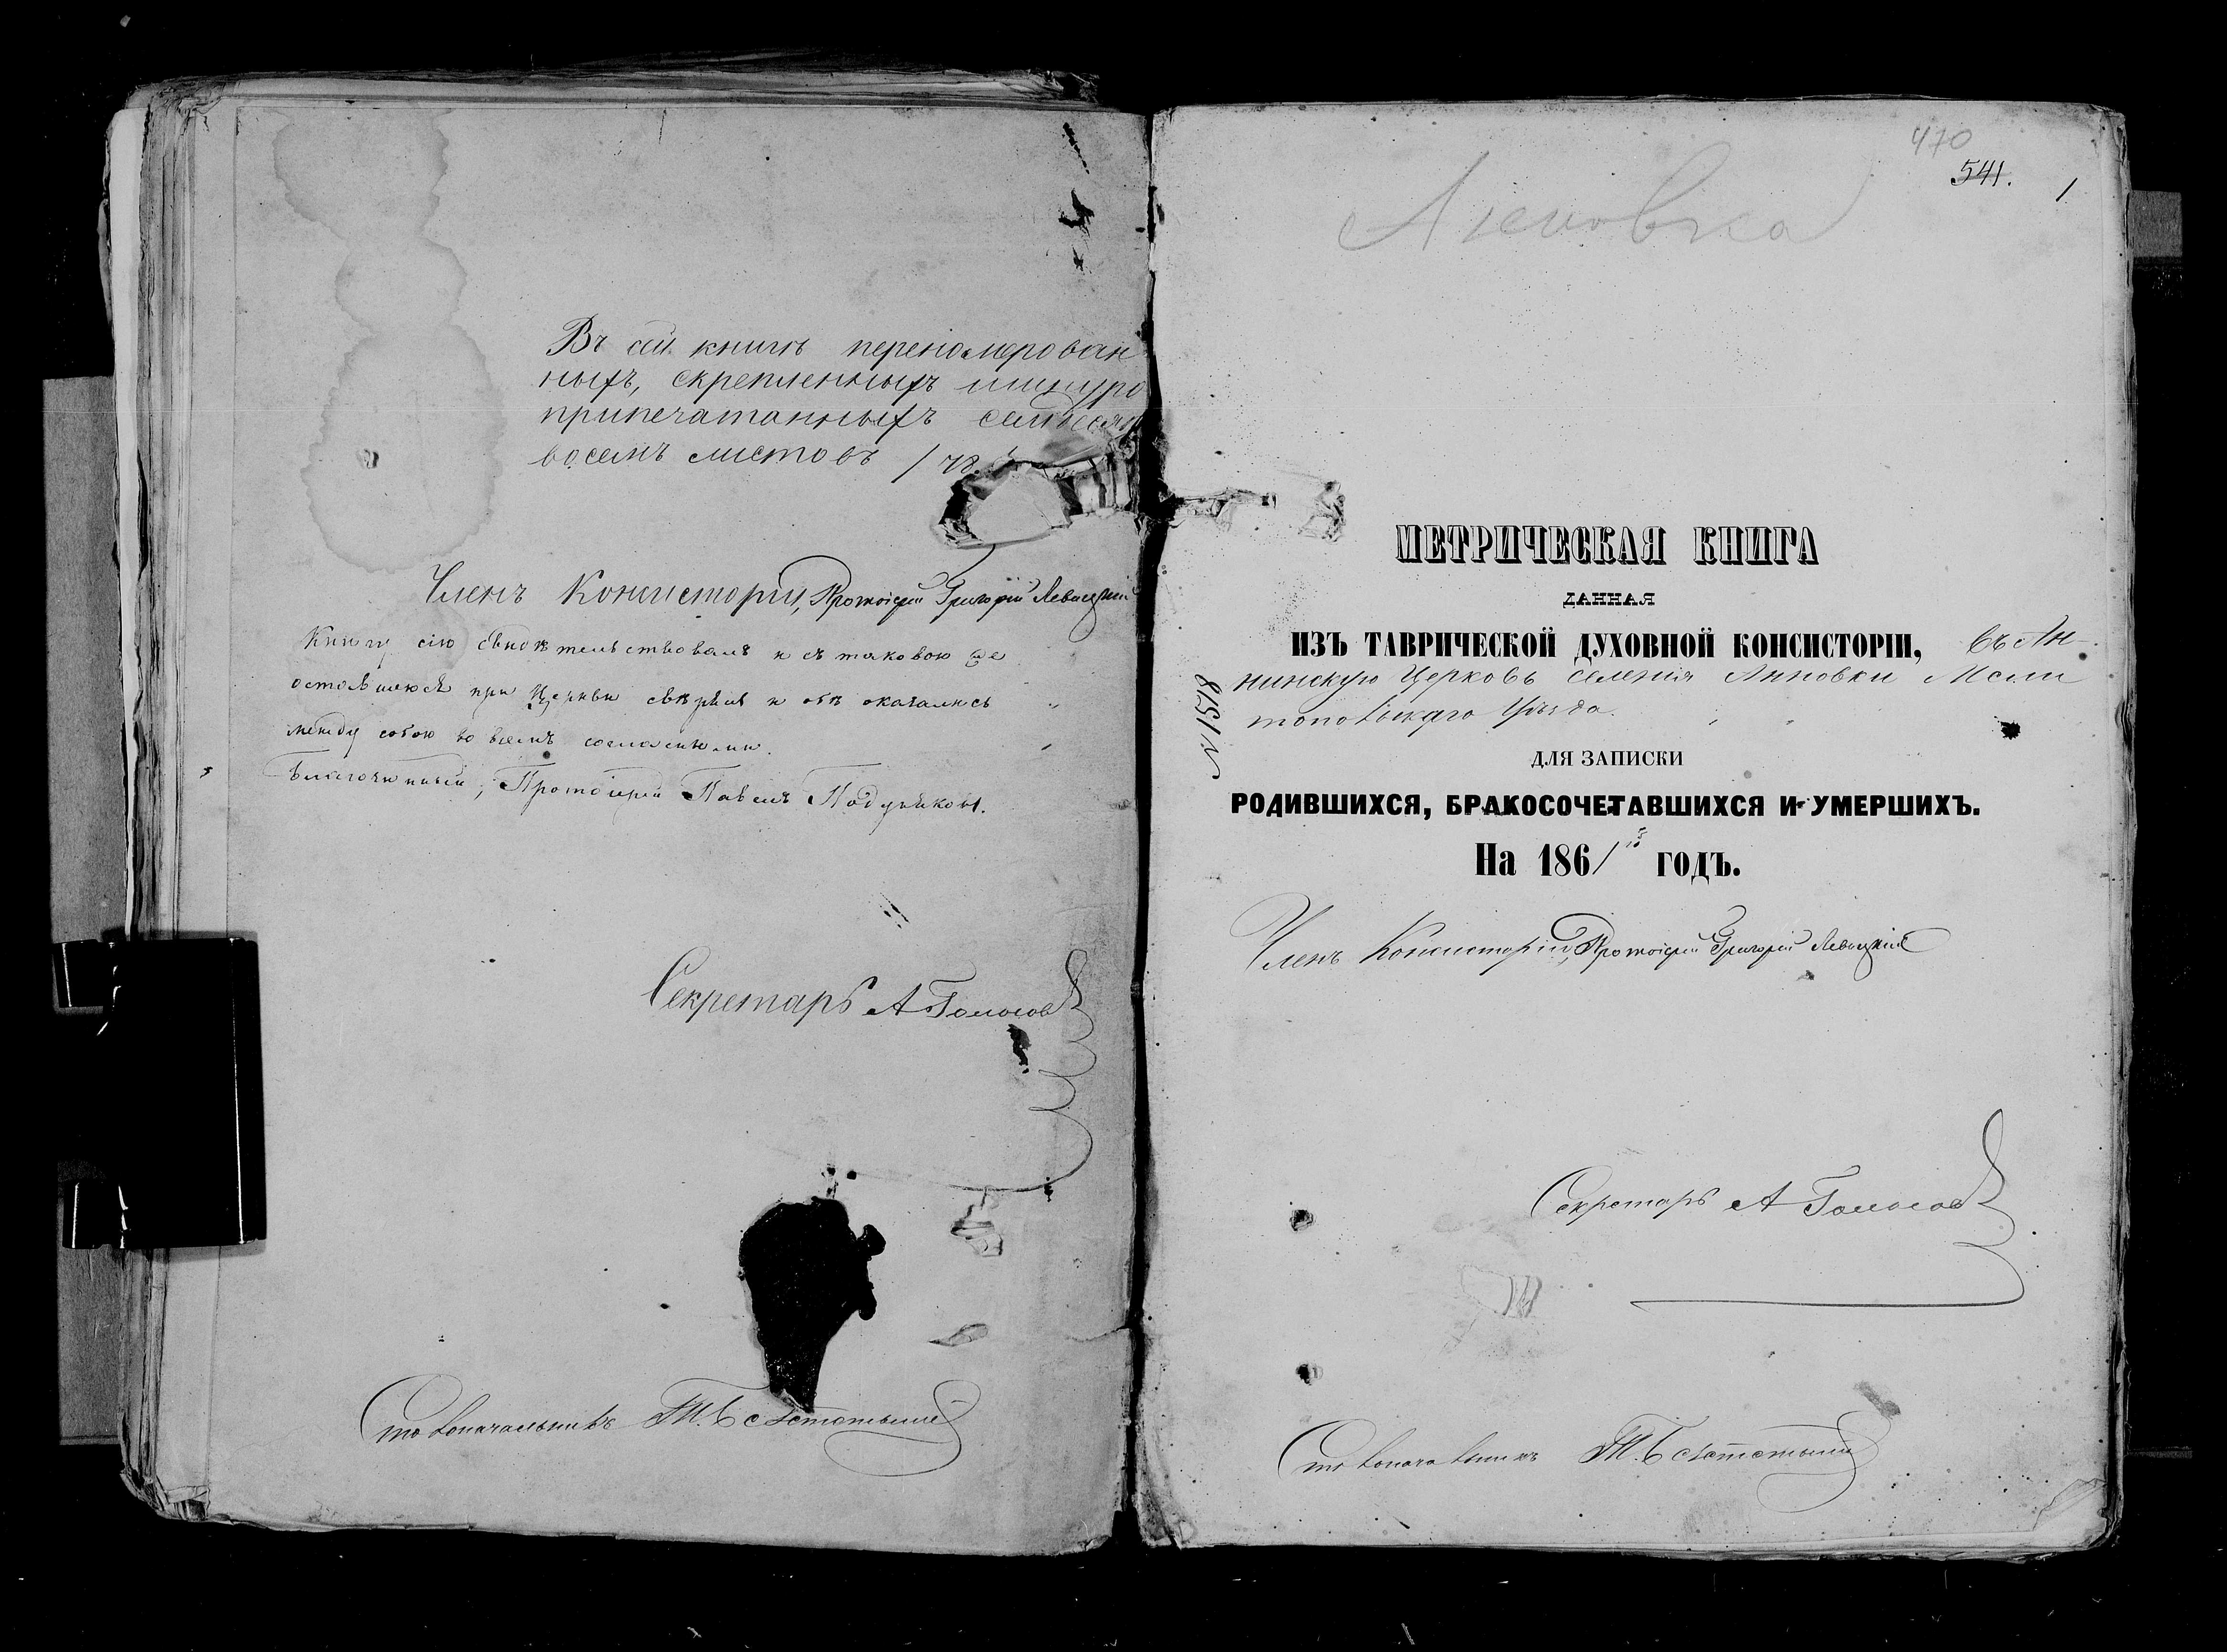 Въ сей книгѣ перенумерован
ныхъ, скрепленныхъ шнуро
припечатанныхъ семьдесят
восемь листовъ /78.
Членъ Консисторіи, Протоіерей Григорій Левицкій
Книгу сію свидѣтельствовалъ и съ таковою же
оставшеюся при Церкви свѣрялъ и обѣ оказались
между собою во всемъ согласными.
Благочинный, Протоіерей Павелъ
Секретарь А Голосов
Столоначальникъ
470
541.
1
МЕТРИЧЕСКАЯ КНИГА
ДАННАЯ
ИЗЪ ТАВРИЧЕСКОЙ ДУХОВНОЙ КОНСИСТОРІИ, въ Ан-
нинскую Церковь селенія Анновки Мели
топольскаго Уѣзда.
№ 1518
ДЛЯ ЗАПИСКИ
РОДИВШИХСЯ, БРАКОСОЧЕТАВШИХСЯ И УМЕРШИХЪ.
На 1861 годъ.
Членъ Консисторіи, Протоіерей Григорій Левицкій
Секретарь А Голосов
Столоначальникъ